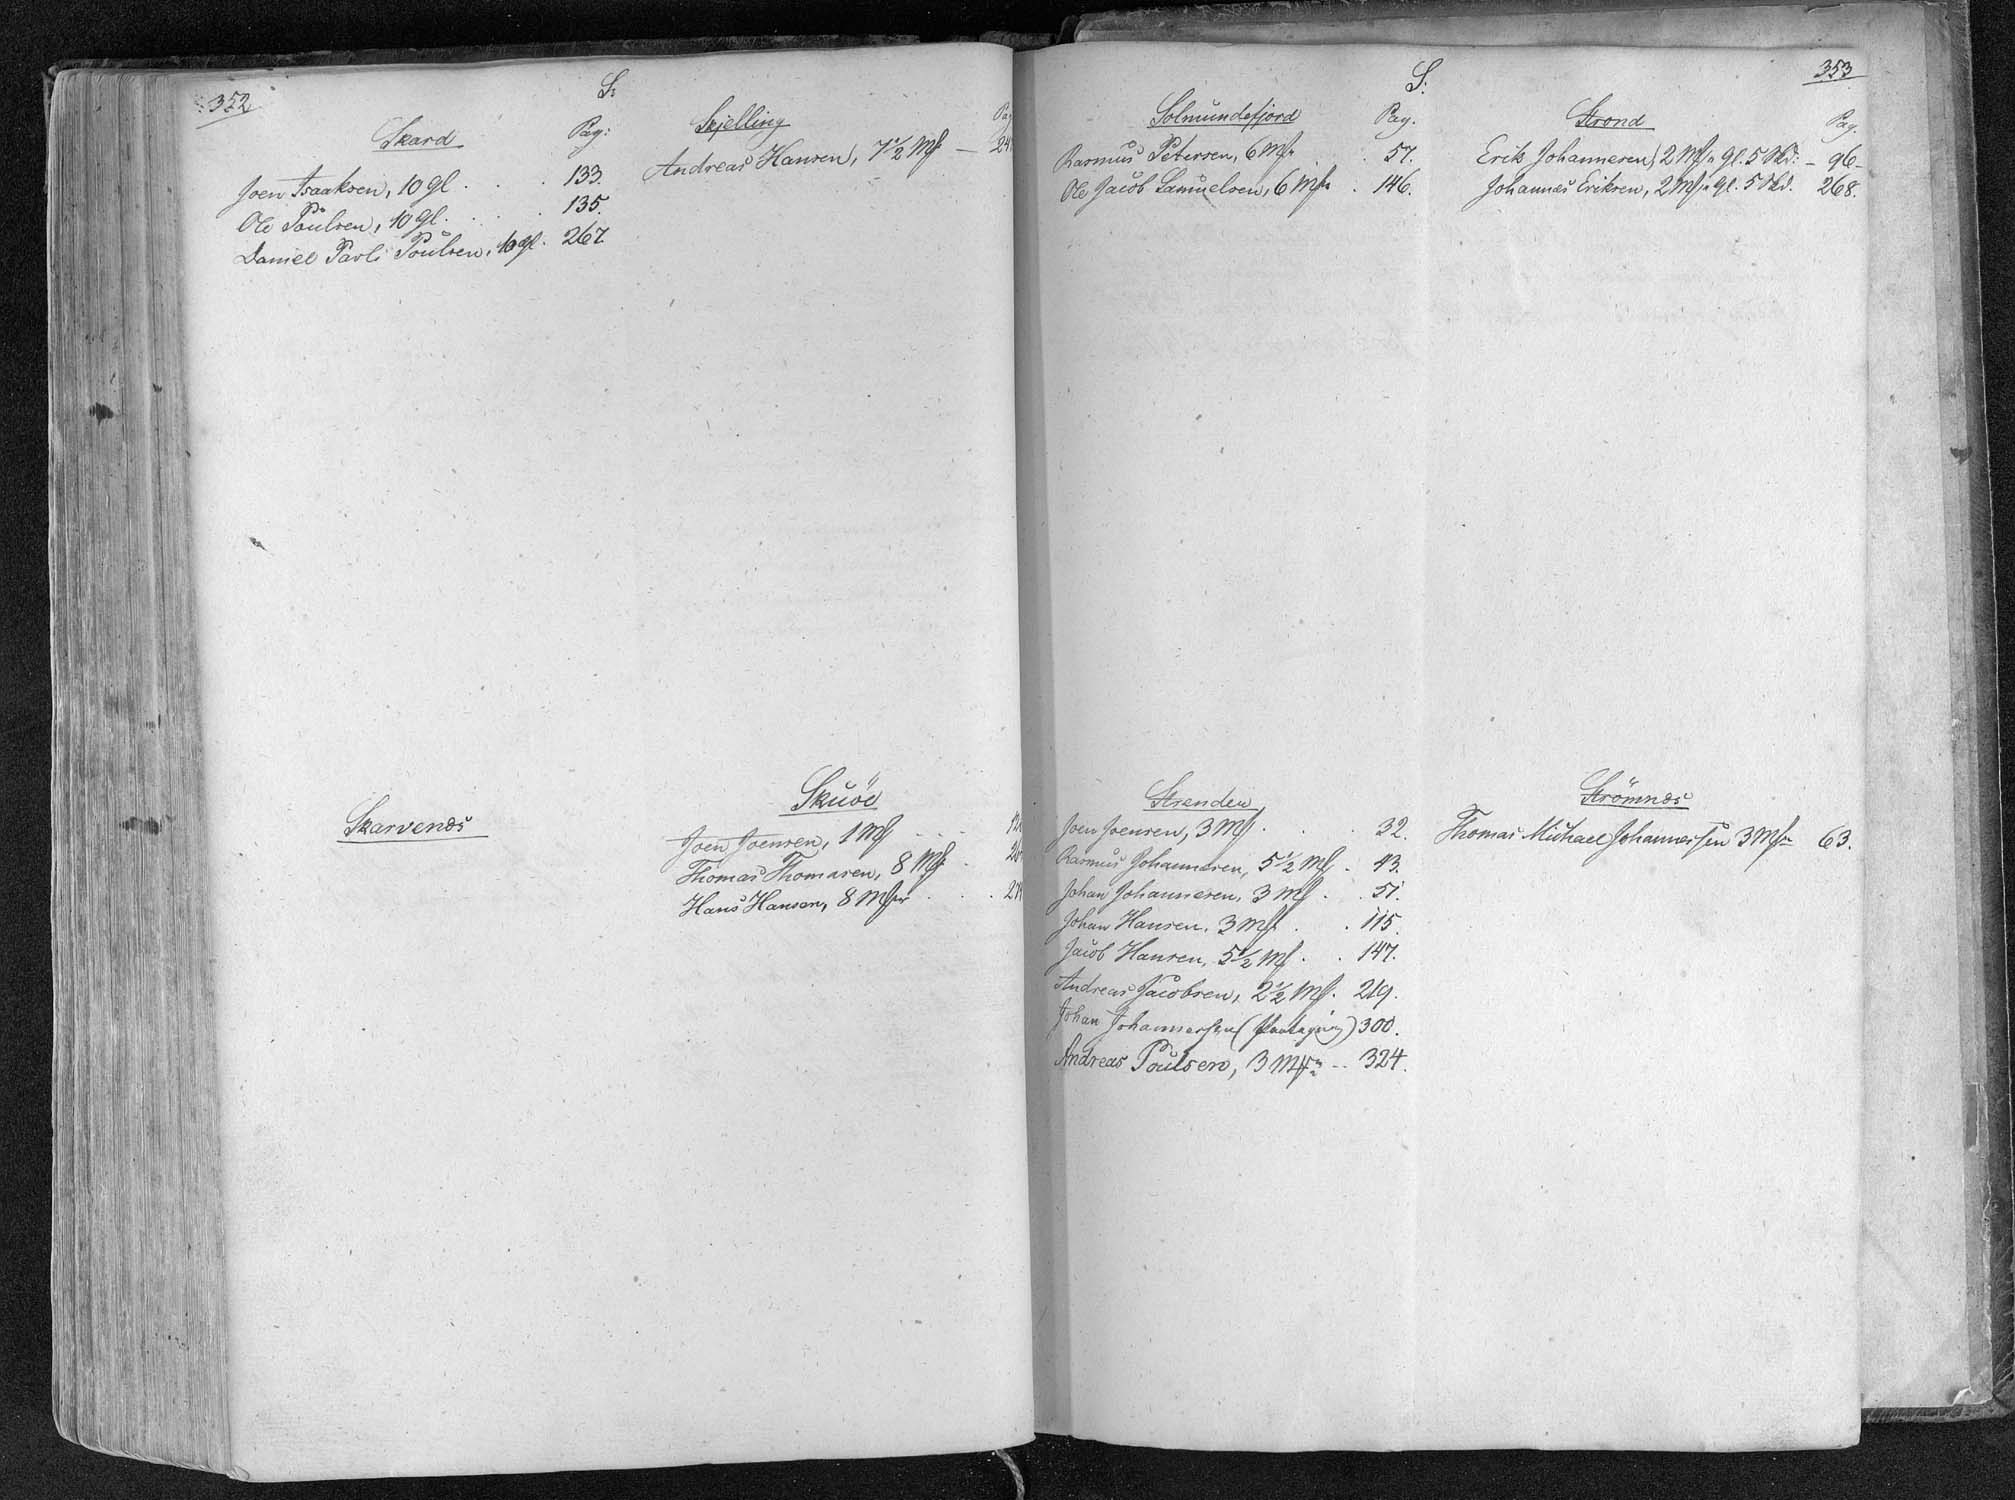 352
S:
Skard
Pag:
Joen Isaaksen, 10 gl. . . . 133.
Ole Poulsen, 10 gl. . . . 135.
Daniel Pavli Poulsen, 10 gl. 267.
Skjelling
Andreas Hansen, 7 1/2 Mk —
Skarvenæs
Skuöe
Joen Joensen, 1 Mk
Thomas Thomasen, 8 Mk
Hans Hansen, 8 Mk
353
S:
Solmundefjord
Pag.
Rasmus Petersen, 6 Mk . . 57.
Ole Jacob Samuelsen, 6 Mk . 146.
Strond
Pag.
Erik Johannesen, 2 Mk " gl. 5 Skd: – 96–
Johannes Eriksen, 2 Mk " gl. 5 Skd. 268.
Strenden
Joen Joensen, 3 Mk . . . 32.
Rasmus Johannesen, 5 1/2 Mk . 43.
Johan Johannesen, 3 Mk . . 51.
Johan Hansen, 3 Mk . . 115.
Jacob Hansen, 5 1/2 Mk . . 147.
Andreas Jacobsen, 2 1/2 Mk. 219.
Johan Johannessen 300.
Andreas Poulsen, 3 Mk -- 324.
Strömnæs
Thomas Michael Johannessen 3 Mk 63.